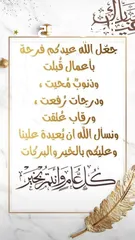 جعَل الله عيدكم فرحة
بأعمال قُبلت
وذنوبٌ مُحيت ،
ودرجات رُفعت ،
ورقاب عُتقت
ونسأل الله ان يُعيدة علينا
وعليكم بالخير والبركات
كل عام وانتم بخير